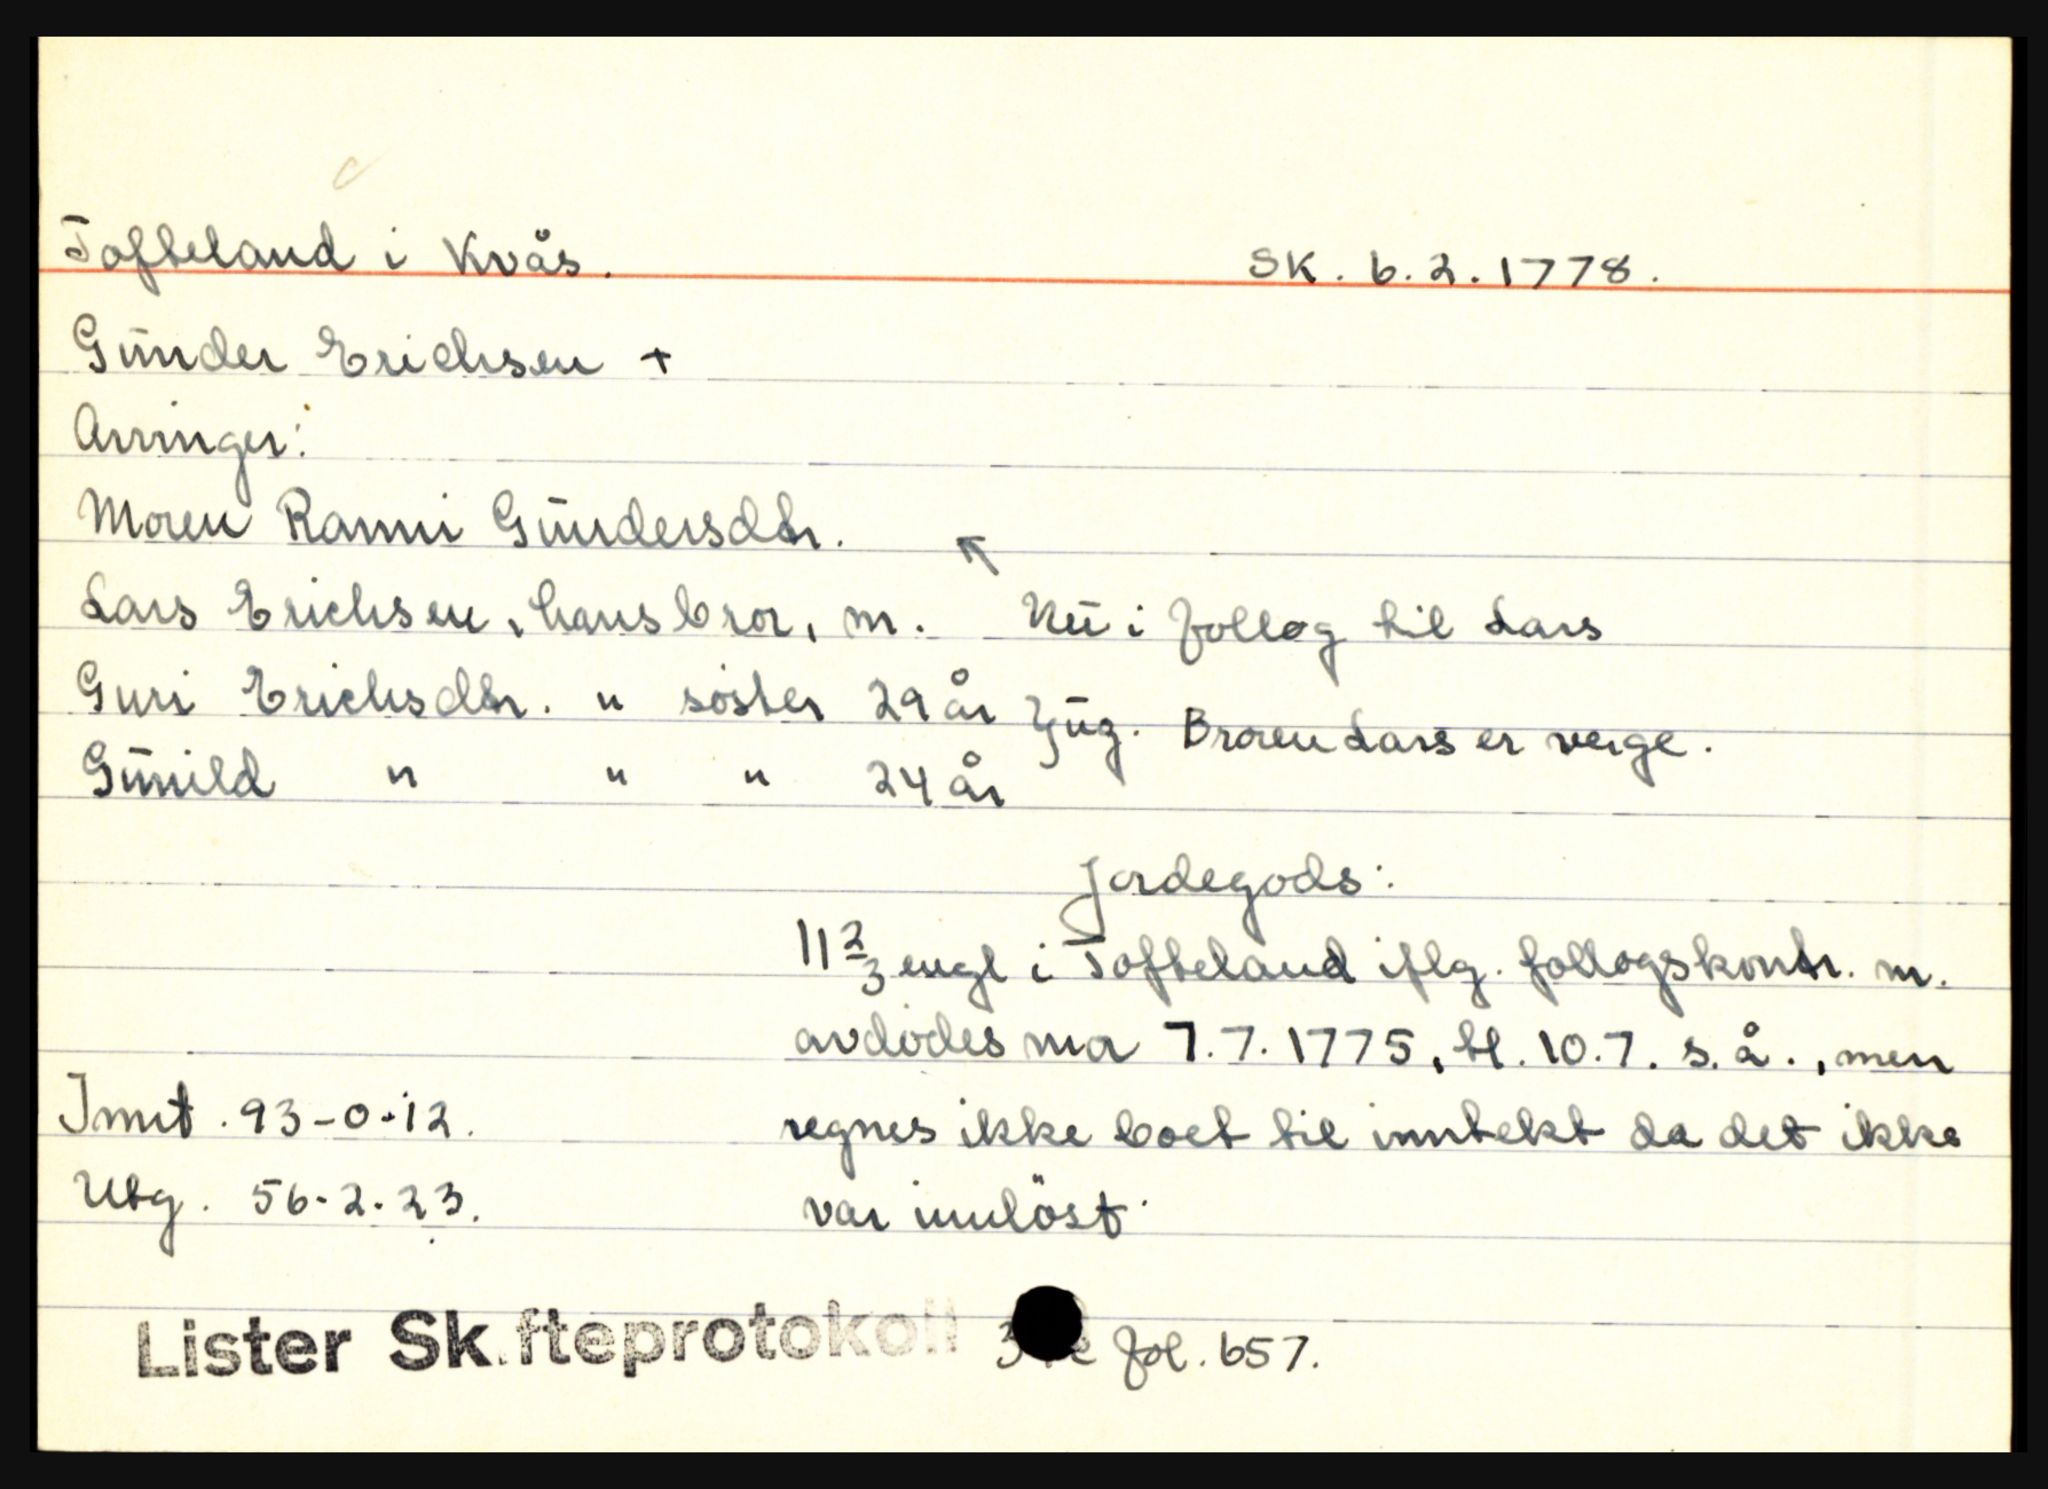 Tofteland i Kvås. SK. 6.2.1778.
Gūnder Erichsen +
Arvinger:
Moren Ranni Gūndersdtr. ↖
Lars Erichsen, hans bror, m. Nū i follog til Lars
Guri Erichsdtr. " söster 29 år
Gūnild " " " 24 år } ūg. Broren Lars er verge.
Jordegods:
11 2/3 engl i Tofteland iflg. follogskontr. m.
avdödes mor 7.7.1775, tl. 10.7. s.å., men
Innt. 93-0-12. regnes ikke boet til inntekt da det ikke
Utg. 56-2-23. var innlöst.
Lister Skifteprotokoll fol. 657.